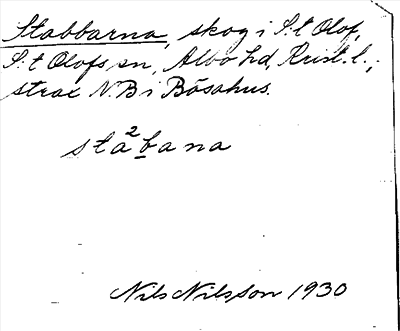 Stabbarna, skog i S:t Olof,
S:t Olofs sn, Albo hd, Krist. l.;
strax N. B i Bösahus.
sta²bana
Nils Nilsson 1930